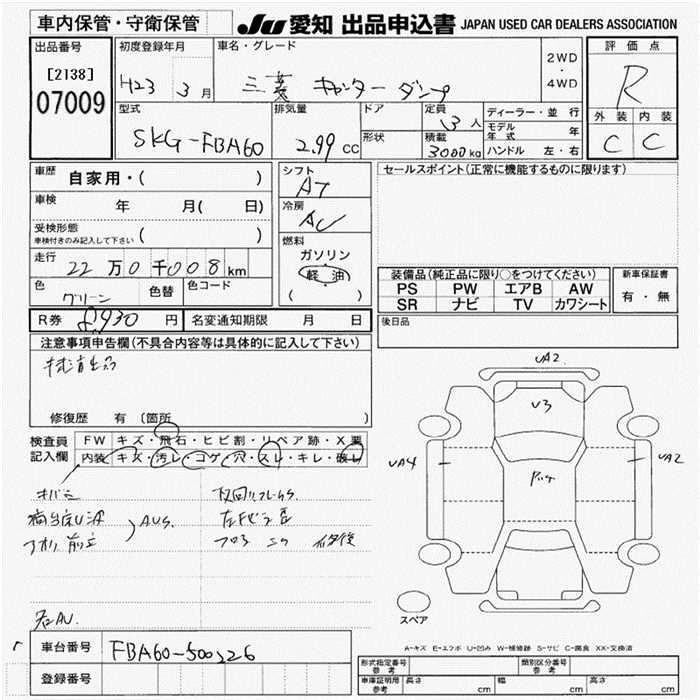 車内保管・守衛保管
JU 愛知 出品申込書 JAPAN USED CAR DEALERS ASSOCIATION
出品番号
[2138]
07009
初度登録年月
H23 3月
車名・グレード
三菱 キャンター ダンプ
2WD
・
4WD
評価点
R
外装 内装
C C
型式
SKG-FBA60
排気量
2.99 cc
ドア
形状
定員
3人
積載
3000kg
ディーラー・並行
モデル年式 年
ハンドル 左・右
車歴
自家用・( )
車検
年 月( 日)
受検形態
車検付きのみ記入して下さい ( )
走行
22万0千008km
色
グリーン
色替
色コード
シフト
AT
冷房
AC
燃料
ガソリン
軽・油
( )
セールスポイント(正常に機能するものに限ります)
装備品(純正品に限り○をつけてください)
PS PW エアB AW
SR ナビ TV カワシート
新車保証書
有・無
R券 8,930 円
名変通知期限 月 日
後日品
注意事項申告欄(不具合内容等は具体的に記入して下さい)
抹消出品
修復歴 有 (箇所 )
検査員
記入欄
FW キズ・飛石・ヒビ割・リペア跡・X要
内装 キズ・汚レ・コゲ・穴・スレ・キレ・破レ
A,U,S.
UA2
U3
UA4
UA2
スペア
A-キズ E-エクボ U-凹み W-補修跡 S-サビ C-腐食 XX-交換済
車台番号
FBA60-500226
登録番号
型式指定番号
参考
類別区分番号
参考
車庫証明用
参考
長さ cm
幅 cm
高さ cm